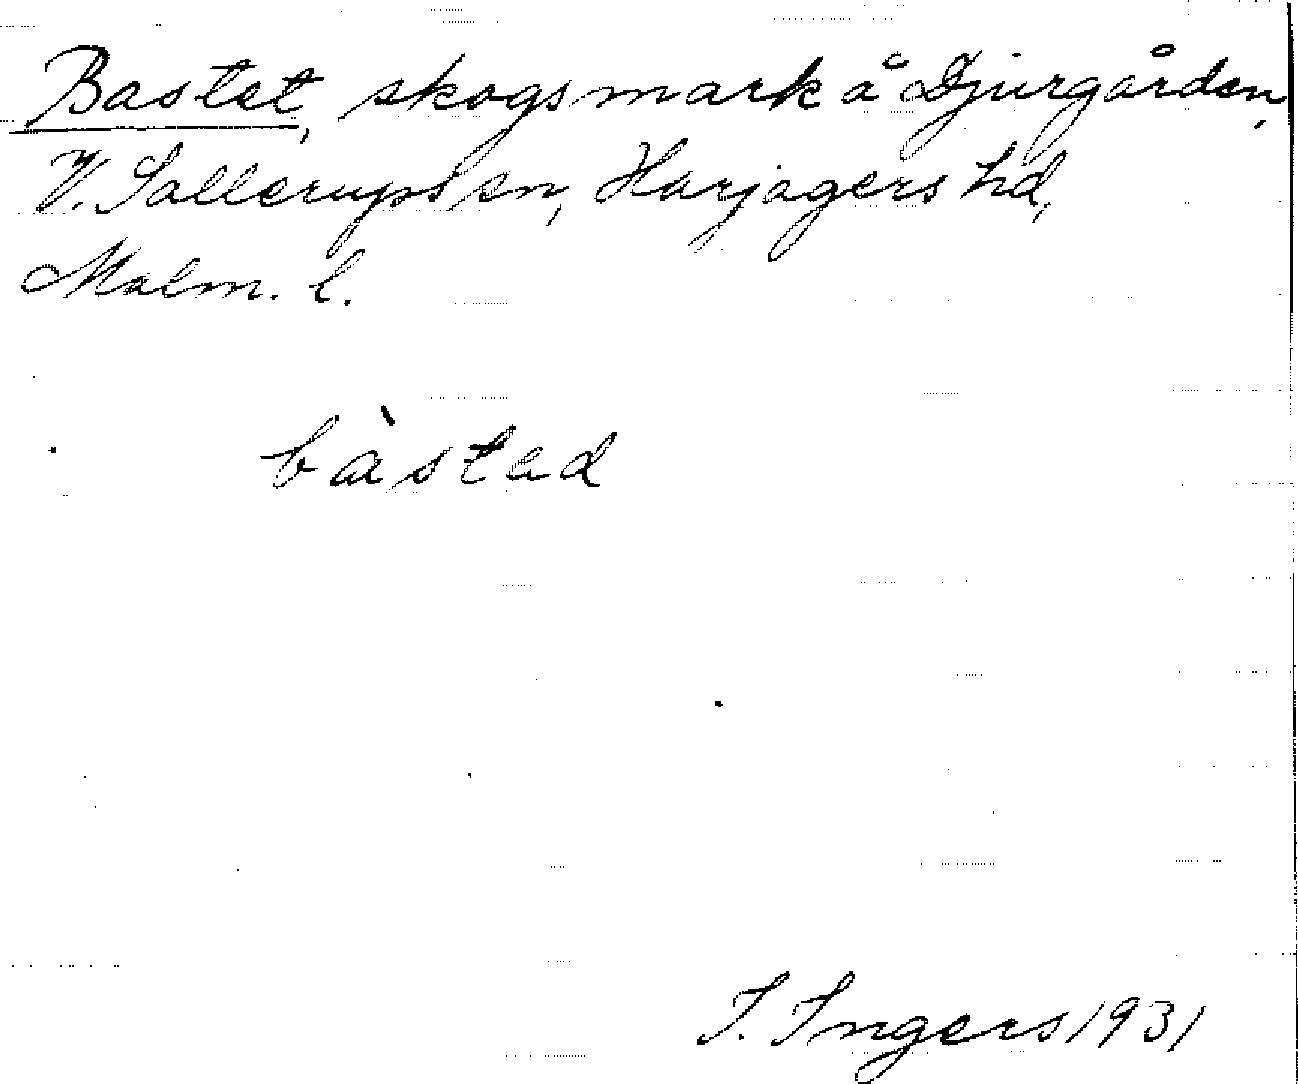 Bastet, skogsmark å Djurgården,
V. Sallerups sn, Harjagers hd,
Malm. l.
bàsted
I. Ingers 1931